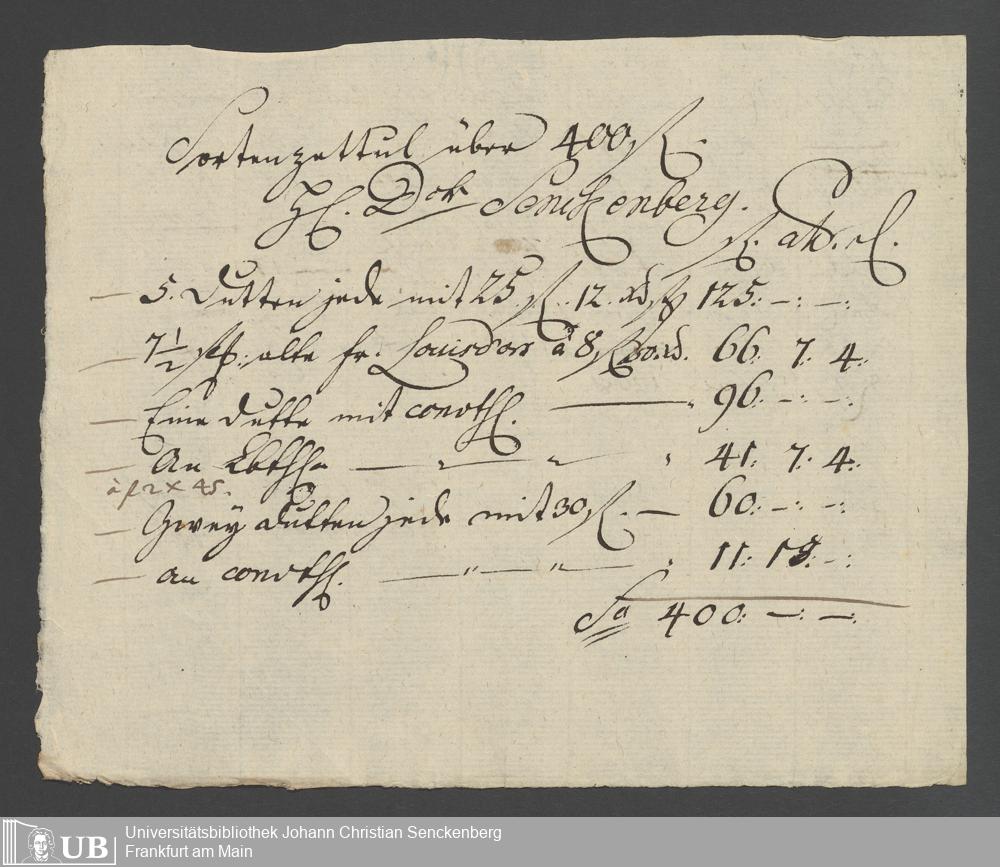 Sortenzettul über 400 R.
H. Dokt Senckenberg.
R. alb. d.
5. Dutten jede mit 25 R. 12 125. —. —.
7 1/2 alte fr. Louisdors à 8 R 66. 7. 4.
Eine Dutte mit convth. — 96. —. —.
An Lbthlr — " — " — 41. 7. 4.
à f 2 X 45.
Zwey Dutten jede mit 30 R. — 60. —. —.
an convth. — " — " — 11. 18. —.
Sa 400. —. —.
UB
Universitätsbibliothek Johann Christian Senckenberg
Frankfurt am Main